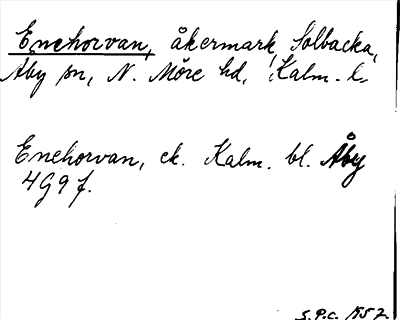 Enehorvan, åkermark, Solbacka,
Åby sn, N. Möre hd, Kalm. l.
Enehorvan, ek. Kalm. bl. Åby
4G9f.
S.P.C. 1957